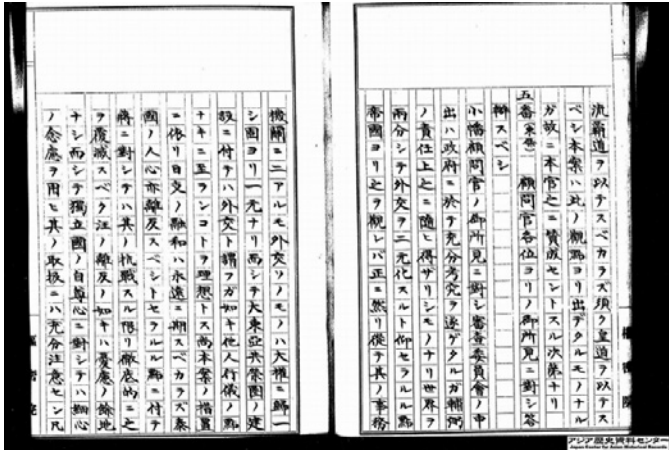 流覇道ヲ以テスベカラズ須ク皇道ヲ以テス
ベシ本案ハ此ノ觀點ヨリ出デタルモノナル
ガ故ニ本官之ニ賛成セントスル次第ナリ
五番（東條） 顧問官各位ヨリノ御所見ニ對シ答
辯スベシ
小幡顧問官ノ御所見ニ對シ審査委員會ノ申
出ハ政府ニ於テ充分考究ヲ遂ゲタルガ輔弼
ノ責任上之ニ隨ヒ得サリシモノナリ世界ヲ
兩分シテ外交ヲ二元化スルト仰セラルル點
帝國ヨリ之ヲ觀レバ正ニ然リ從テ其ノ事務
機關ニ二アルモ外交ソノモノハ大權ニ歸一
シ固ヨリ一元ナリ而シテ大東亞共榮圈ノ建
設ニ付テハ外交ト謂フガ如キ他人行儀ノ點
ナキニ至ランコトヲ理想トス尚本案ノ措置
ニ依リ日交ノ融和ハ永遠ニ期スベカラズ泰
國ノ人心亦離反スベシトセラルル點ニ付テ
蔣ニ對シテハ其ノ抗戰スル限リ徹底的ニ之
ヲ覆滅スベク汪ノ離反ノ如キハ憂慮ノ餘地
ナシ而シテ獨立國ノ自尊心ニ對シテハ細心
ノ念慮ヲ用ヒ其ノ取扱ニハ充分注意セン凡
樞密院
樞密院
アジア歴史資料センター
Japan Center for Asian Historical Records